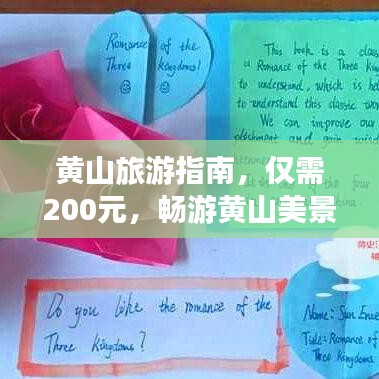 Romance of the
Three Kingdoms!
This book is a class
a Romance of the Three King
to understand, which is he
to understand this classic wor
We can improve our
黄山旅游指南，仅需
200元，畅游黄山美景
Do you like the romance of the
Three Kingdoms?
Name: Sun
Title: Romance of
Three Kingdoms